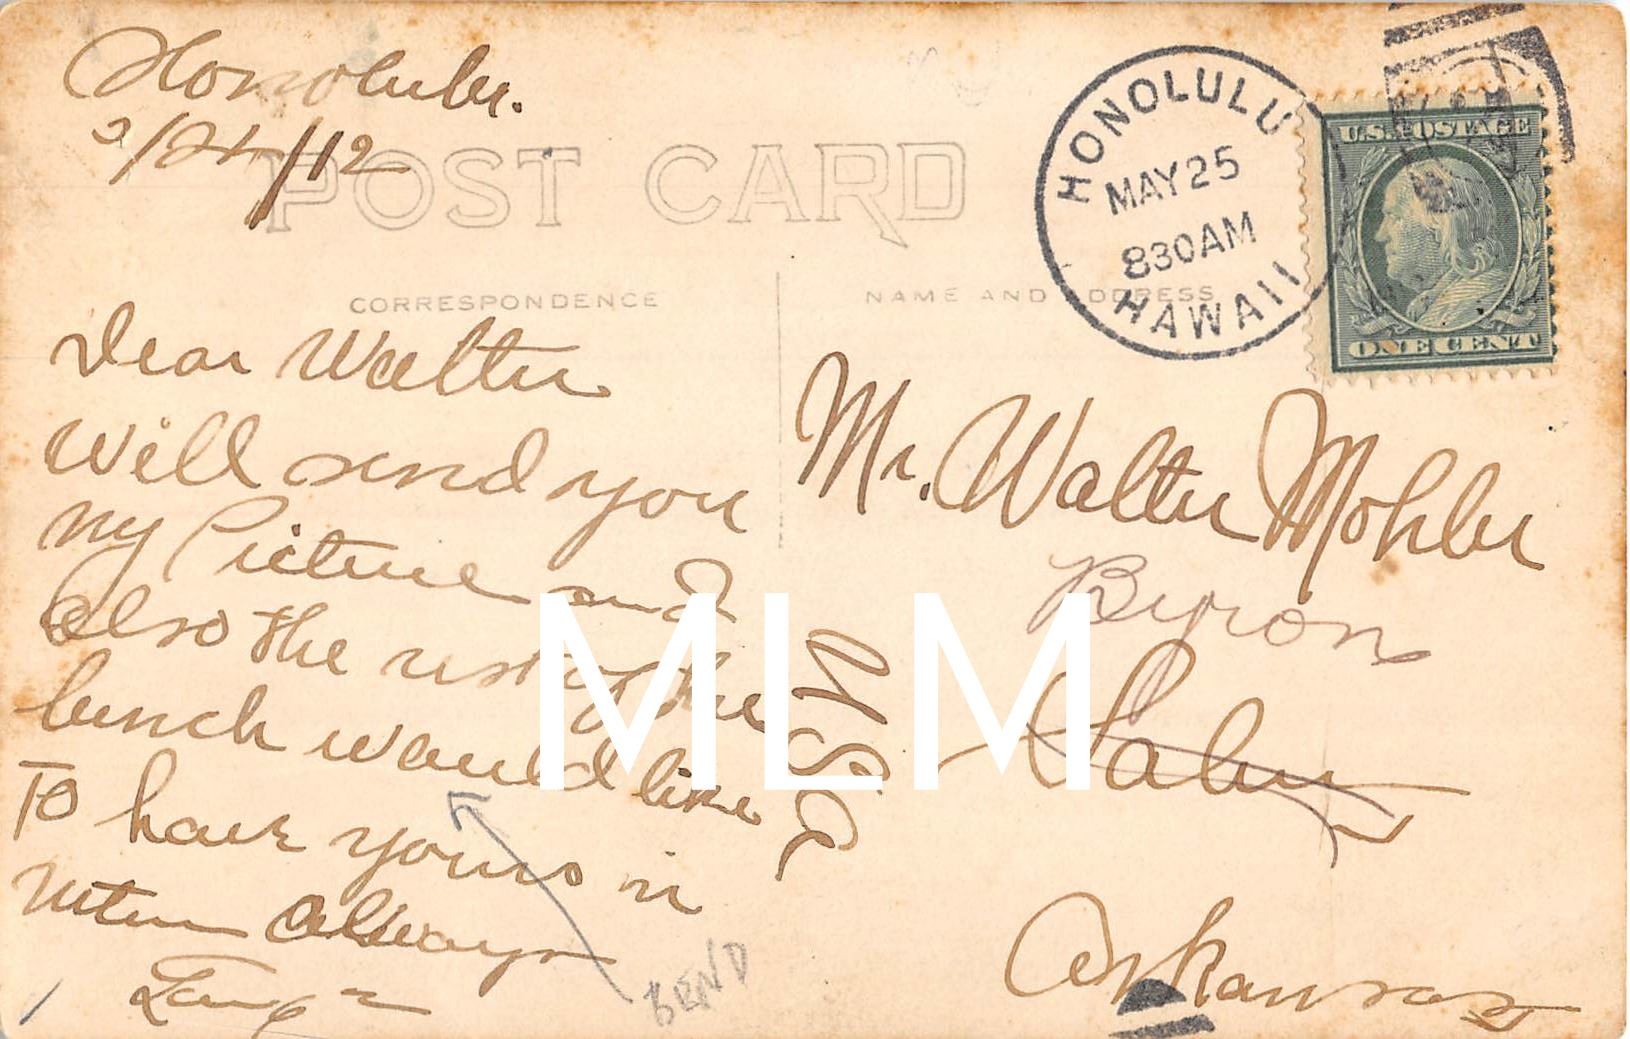 Honolulu.
5/24/12
POST CARD
CORRESPONDENCE
NAME AND ADDRESS
HONOLULU
MAY 25
830AM
HAWAII
U.S. POSTAGE
ONE CENT
Dear Walter
Will send you
my Picture and
also the rest of the
bunch would like
To have yours in
return always
Mr. Walter Mohler
Byron
Arkansas
U S A
BEND
MLM